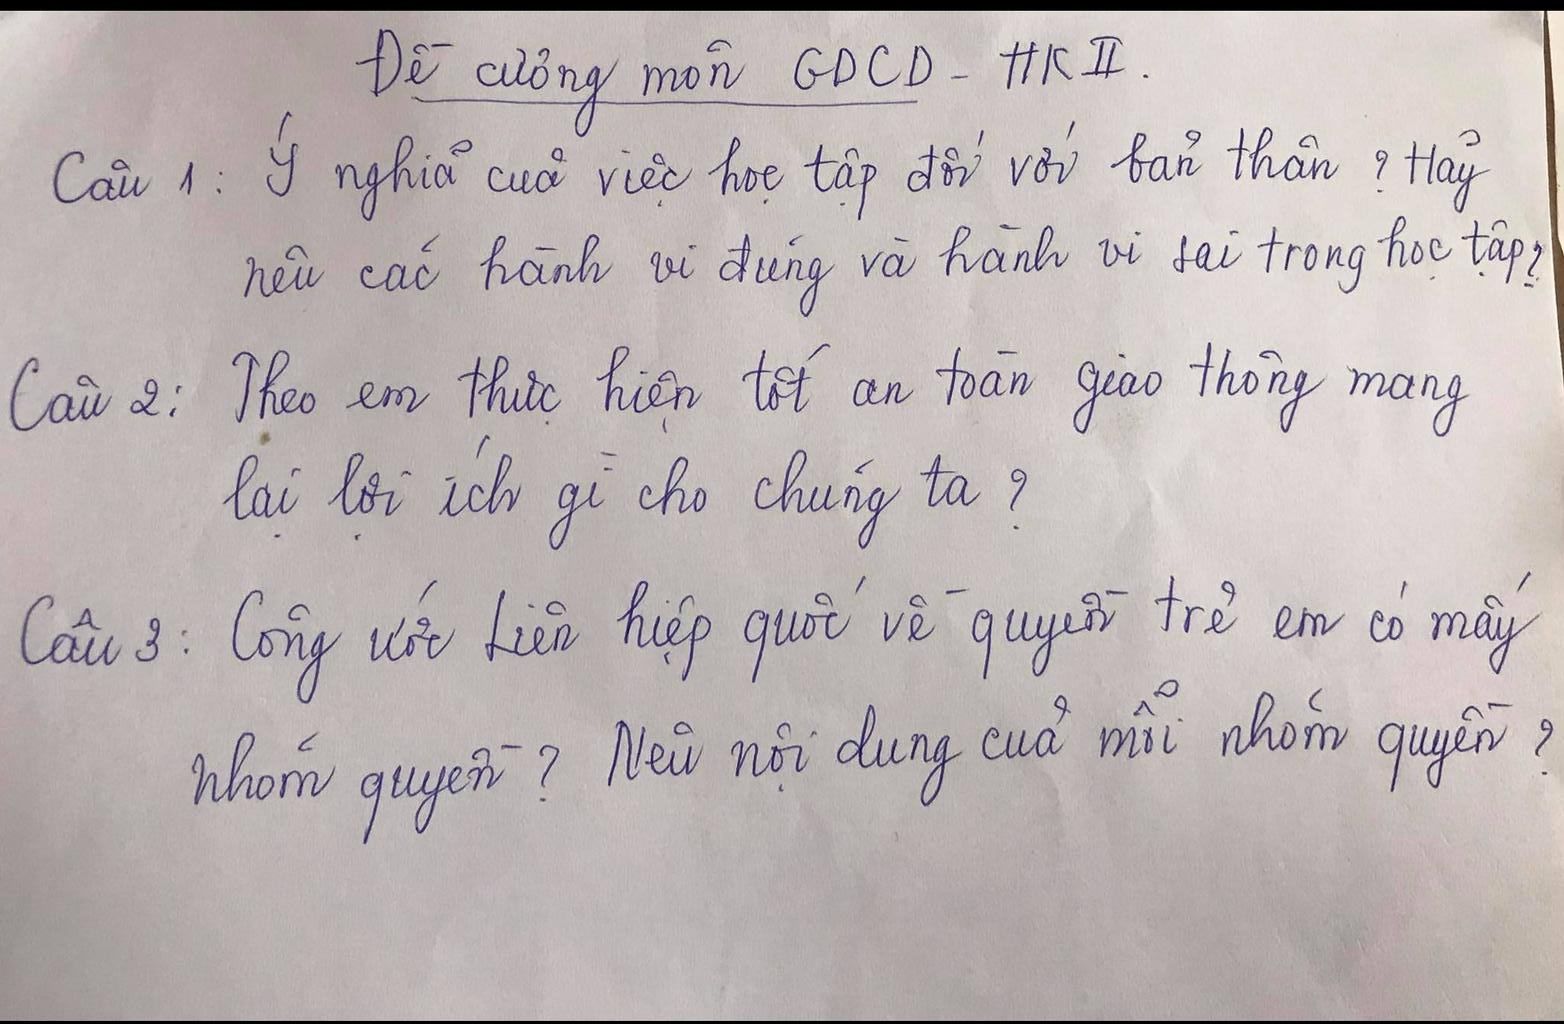 Đề cương môn GDCD - HK II.
Câu 1: Ý nghĩa của việc học tập đối với bản thân? Hãy
nêu các hành vi đúng và hành vi sai trong học tập?
Câu 2: Theo em thực hiện tốt an toàn giao thông mang
lại lợi ích gì cho chúng ta?
Câu 3: Công ước Liên hiệp quốc về quyền trẻ em có mấy
nhóm quyền? Nêu nội dung của mỗi nhóm quyền?